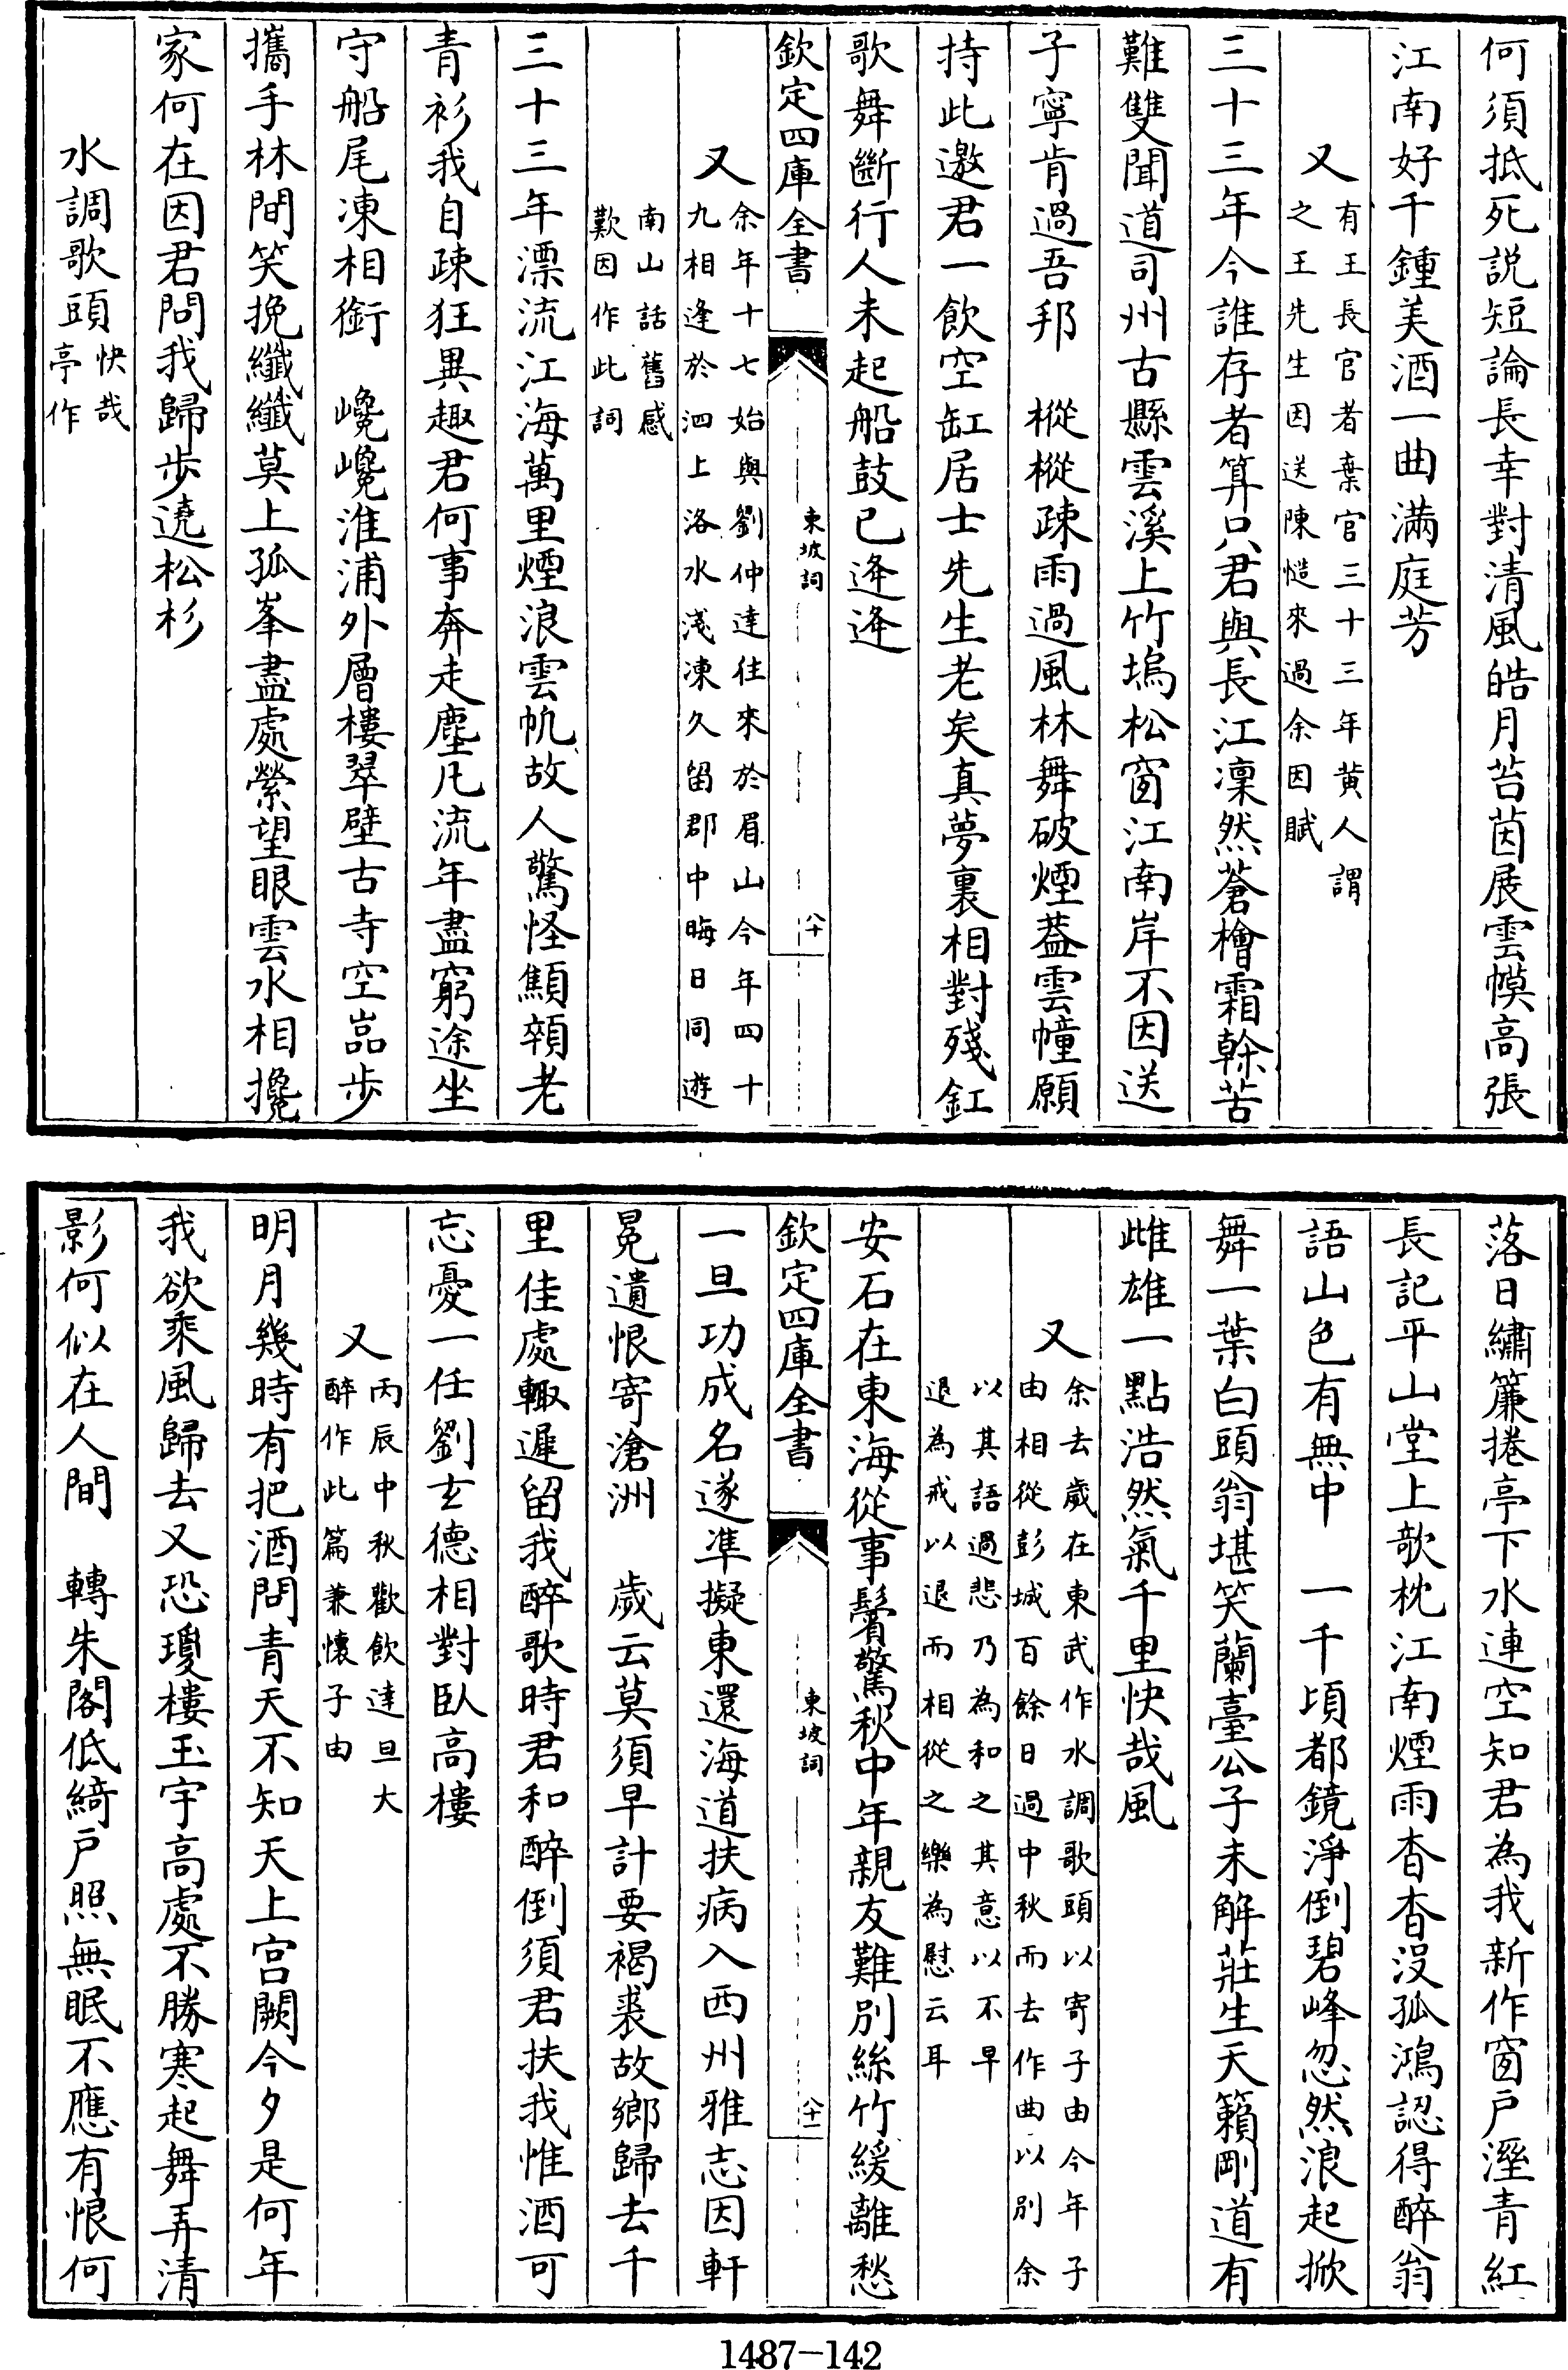 何須抵死説短論長幸對清風皓月苔茵展雲幙高張
江南好千鍾美酒一曲滿庭芳
又有王長官者棄官三十三年黄人謂
之王先生因送陳慥來過余因賦
三十三年今誰存者算只君與長江凜然蒼檜霜幹苦
難雙聞道司州古縣雲溪上竹塢松窗江南岸不因送
子寧肯過吾邦　樅樅疎雨過風林舞破煙葢雲幢願
持此邀君一飲空缸居士先生老矣真夢裏相對殘釭
歌舞斷行人未起船鼓已逄逄
欽定四庫全書
東坡詞
八十
又余年十七始與劉仲達往來於眉山今年四十
九相逢於泗上洛水淺凍久留郡中晦日同遊
南山話舊感
歎因作此詞
三十三年漂流江海萬里煙浪雲帆故人驚怪顦顇老
青衫我自疎狂異趣君何事奔走塵凡流年盡窮途坐
守船尾凍相銜　巉巉淮浦外層樓翠壁古寺空嵓步
攜手林間笑挽纖纖莫上孤峯盡處縈望眼雲水相攙
家何在因君問我歸步遶松杉
水調歌頭快哉
亭作
落日繡簾捲亭下水連空知君為我新作窗户溼青紅
長記平山堂上欹枕江南煙雨杳杳没孤鴻認得醉翁
語山色有無中　一千頃都鏡淨倒碧峰忽然浪起掀
舞一葉白頭翁堪笑蘭臺公子未解莊生天籟剛道有
雌雄一點浩然氣千里快哉風
又余去歲在東武作水調歌頭以寄子由今年子
由相從彭城百餘日過中秋而去作曲以别余
以其語過悲乃為和之其意以不早
退為戒以退而相從之樂為慰云耳
安石在東海從事鬢驚秋中年親友難别絲竹緩離愁
欽定四庫全書
東坡詞
八十一
一旦功成名遂凖擬東還海道扶病入西州雅志因軒
冕遺恨寄滄洲　歲云莫須早計要褐裘故鄉歸去千
里佳處輙遲留我醉歌時君和醉倒須君扶我惟酒可
忘憂一任劉玄德相對臥高樓
又丙辰中秋歡飲達旦大
醉作此篇兼懷子由
明月幾時有把酒問青天不知天上宫闕今夕是何年
我欲乘風歸去又恐瓊樓玉宇高處不勝寒起舞弄清
影何似在人間　轉朱閣低綺户照無眠不應有恨何
1487-142